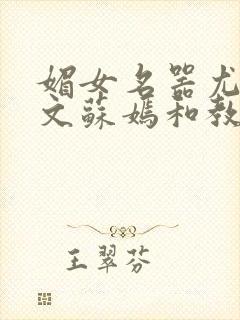 媚女名器尤
文蘇媽和教
王翠芬